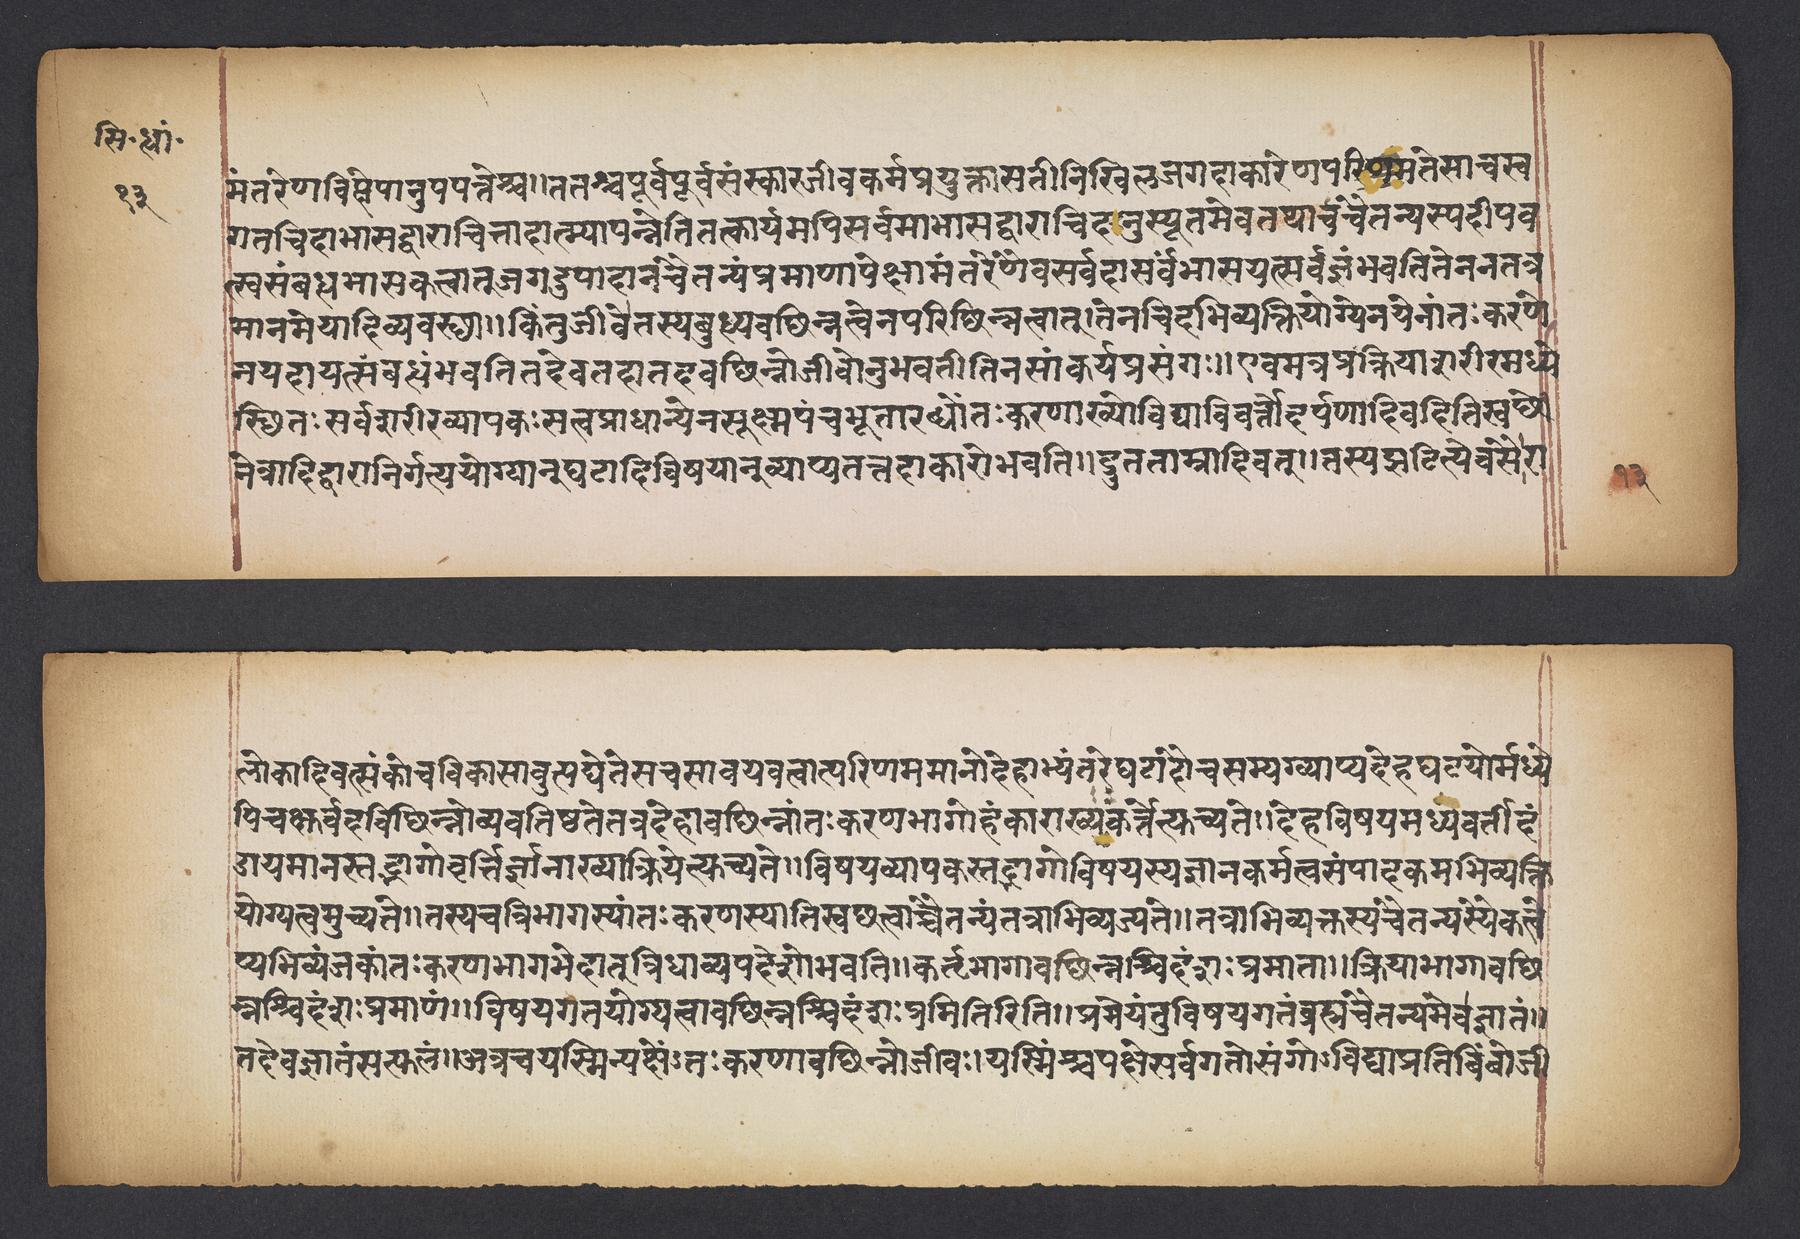 सि॰ध्यां॰
१३
मंतरेणविक्षेपानुपपत्तेश्च॥ततश्चपूर्वपूर्वसंस्कारजीवकर्मप्रयुक्तासतीनिखिलजगदाकारेणपरिणमतेसाचस्व
गतचिदाभासद्वाराचित्तादात्म्यापन्नेतितत्कार्यमपिसर्वमाभासद्वाराचिदनुस्यूतमेवतथाचचैतन्यस्यदीपव
त्स्वसंबद्धभासकत्वात्जगदुपादानंचैतन्यंप्रमाणापेक्षामंतरेणैवसर्वदासर्वंभासयत्सर्वज्ञंभवतितेननतत्र
मानमेयादिव्यवस्था॥किंतुजीवेतस्यबुध्यवछिन्नत्वेनपरिछिन्नत्वात्।तेनचिदभिव्यक्तियोग्येनयेनांतःकरणे
नयदायत्संबद्धंभवतितदेवतदातदवछिन्नोजीवोनुभवतीतिनसांकर्यप्रसंगः॥एवमत्रप्रक्रियाशरीरमध्ये
स्थितःसर्वशरीरव्यापकःसत्वप्राधान्येनसूक्ष्मपंचभूतारब्धोंतःकरणाख्योविद्याविवर्त्तोदर्पणादिवदितिस्वछो
नेत्रादिद्वारानिर्गत्ययोग्यान्घटादिविषयान्व्याप्यतत्तदाकारोभवति॥द्रुतताम्रादिवत्॥तस्यझटित्येवसौरा
१३
लोकादिवत्संकोचविकासावुत्पद्येतेसचसावयवत्वात्परिणममानोदेहाभ्यंतरेघटादौचसम्यग्व्याप्यदेहघटयोर्मध्ये
पिचक्षुर्वदविछिन्नोव्यवतिष्ठतेतत्रदेहावछिन्नांतःकरणभागोहंकाराख्यकर्त्तेत्युच्यते॥देहविषयमध्यवर्तीदं
डायमानस्तद्भागोवृत्तिर्ज्ञानाख्याक्रियेत्युच्यते॥विषयव्यापकस्तद्भागोविषयस्यज्ञानकर्मत्वसंपादकमभिव्यक्ति
योग्यत्वमुच्यते॥तस्यचत्रिभागस्यांतःकरणस्यातिस्वछत्वाच्चैतन्यंतत्राभिव्यज्यते॥तत्राभिव्यक्तस्यचैतन्यस्यैकत्वे
प्यभिव्यंजकांतःकरणभागभेदात्त्रिधाव्यपदेशोभवति॥कर्तृभागावछिन्नश्चिदंशःप्रमाता॥क्रियाभागावछि
न्नश्चिदंशःप्रमाणं॥विषयगतयोग्यत्वावछिन्नश्चिदंशःप्रमितिरिति॥प्रमेयंतुविषयगतंब्रह्मचैतन्यमेवाज्ञातं॥
तदेवज्ञातंसत्फलं॥अत्रचयस्मिन्पक्षेंऽतःकरणावछिन्नोजीवः।यस्मिंश्चपक्षेसर्वगतोसंगोऽविद्याप्रतिबिंबोजी